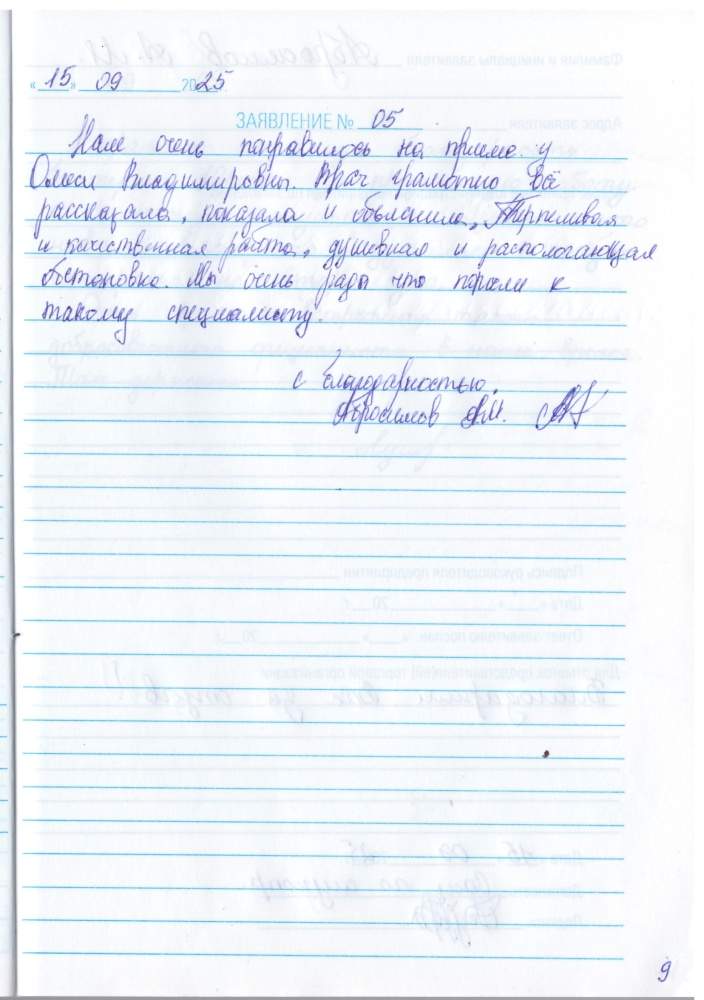 «15» 09 2025
ЗАЯВЛЕНИЕ № 05
Нам очень понравилось на приёме у
Олеси Владимировны. Врач грамотно всё
рассказала, показала и объяснила, Терпеливая
и качественная работа, душевная и распологающая
обстановка. Мы очень рады что попали к
такому специалисту.
с благодарностью.
Абросимов А.М.
9